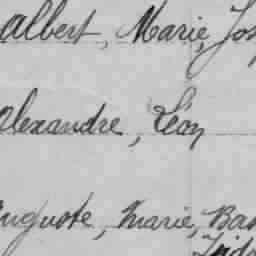 Albert, Marie, Jos
Alexandre, Léon
Auguste, Marie, Bas